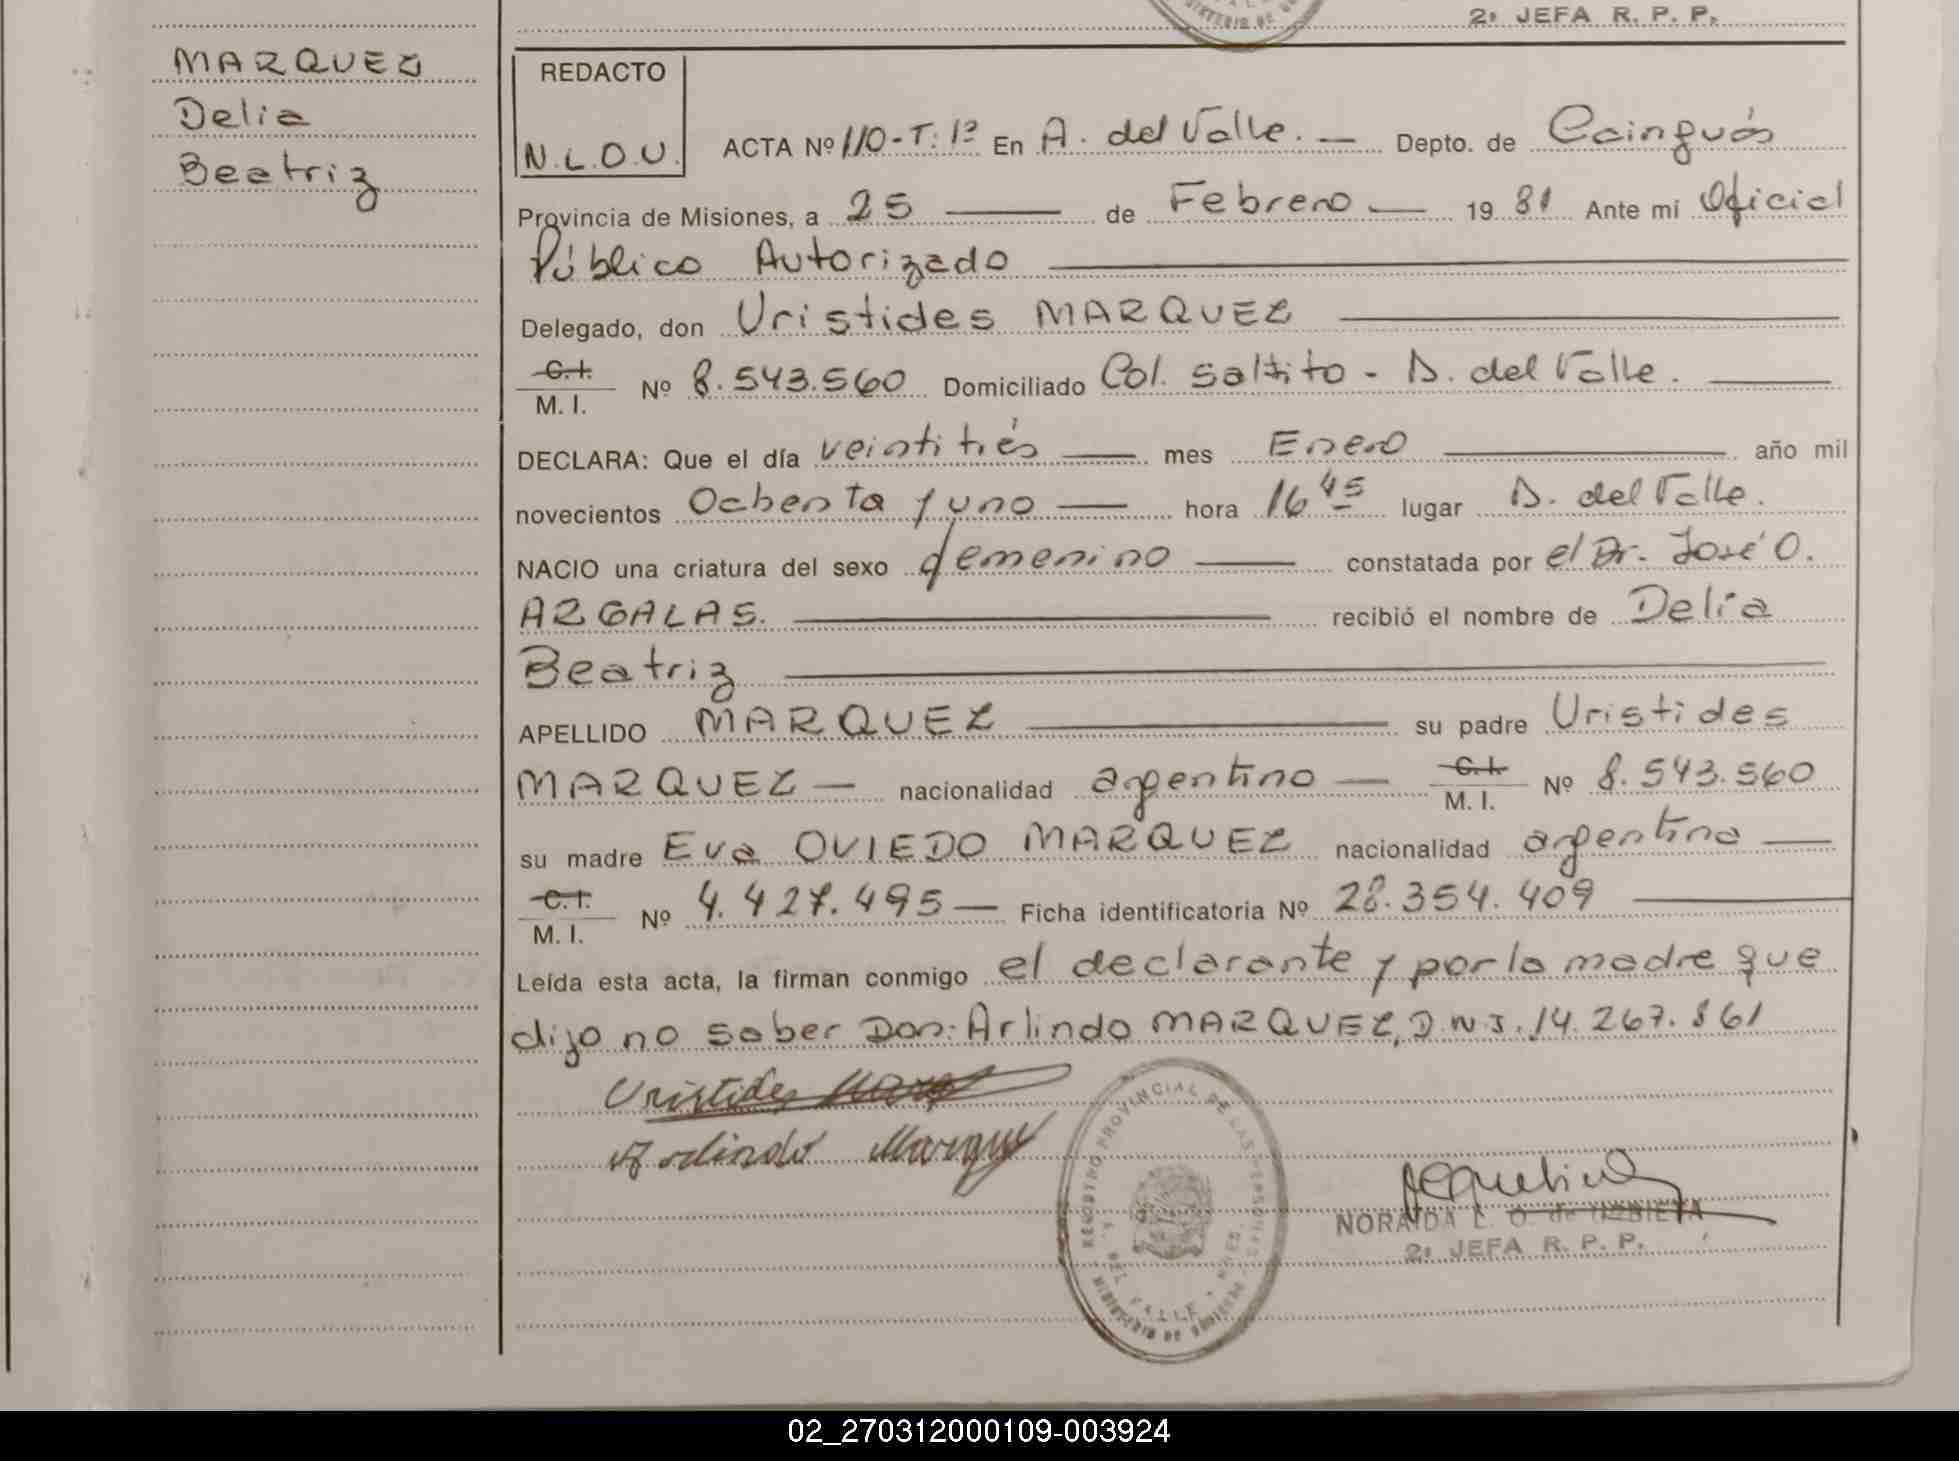 2ª JEFA R. P. P.
MARQUEZ
Delia
Beatriz
REDACTO
N.L.O.U.
ACTA Nº 110-T: 1º En A. del Valle. — Depto. de Cainguás
Provincia de Misiones, a 25 — de Febrero — 1981 Ante mi Oficial
Público Autorizado —
Delegado, don Uristides MARQUEZ —
C.I. M. I. Nº 8.543.560 Domiciliado Col. Saltito - A. del Valle. —
DECLARA: Que el día veintitrés — mes Enero — año mil
novecientos Ochenta y uno — hora 16 45 lugar A. del Valle.
NACIO una criatura del sexo femenino — constatada por el Dr. José O.
ARGALAS. — recibió el nombre de Delia
Beatriz —
APELLIDO MARQUEZ — su padre Uristides
MARQUEZ — nacionalidad argentino — C.I. M. I. Nº 8.543.560
su madre Eva OVIEDO MARQUEZ nacionalidad argentina —
C.I. M. I. Nº 4.427.495 — Ficha identificatoria Nº 28.354.409 —
Leída esta acta, la firman conmigo el declarante y por la madre que
dijo no saber Don: Arlindo MARQUEZ, D.N.I. 14.267.861
Uristides Marq
Arlindo Marquez
REGISTRO PROVINCIAL DE LAS PERSONAS
A. DEL VALLE - MNES.
MINISTERIO DE GOBIERNO
NORAIDA L. O. de URBIETA
2ª JEFA R. P. P.
02_270312000109-003924